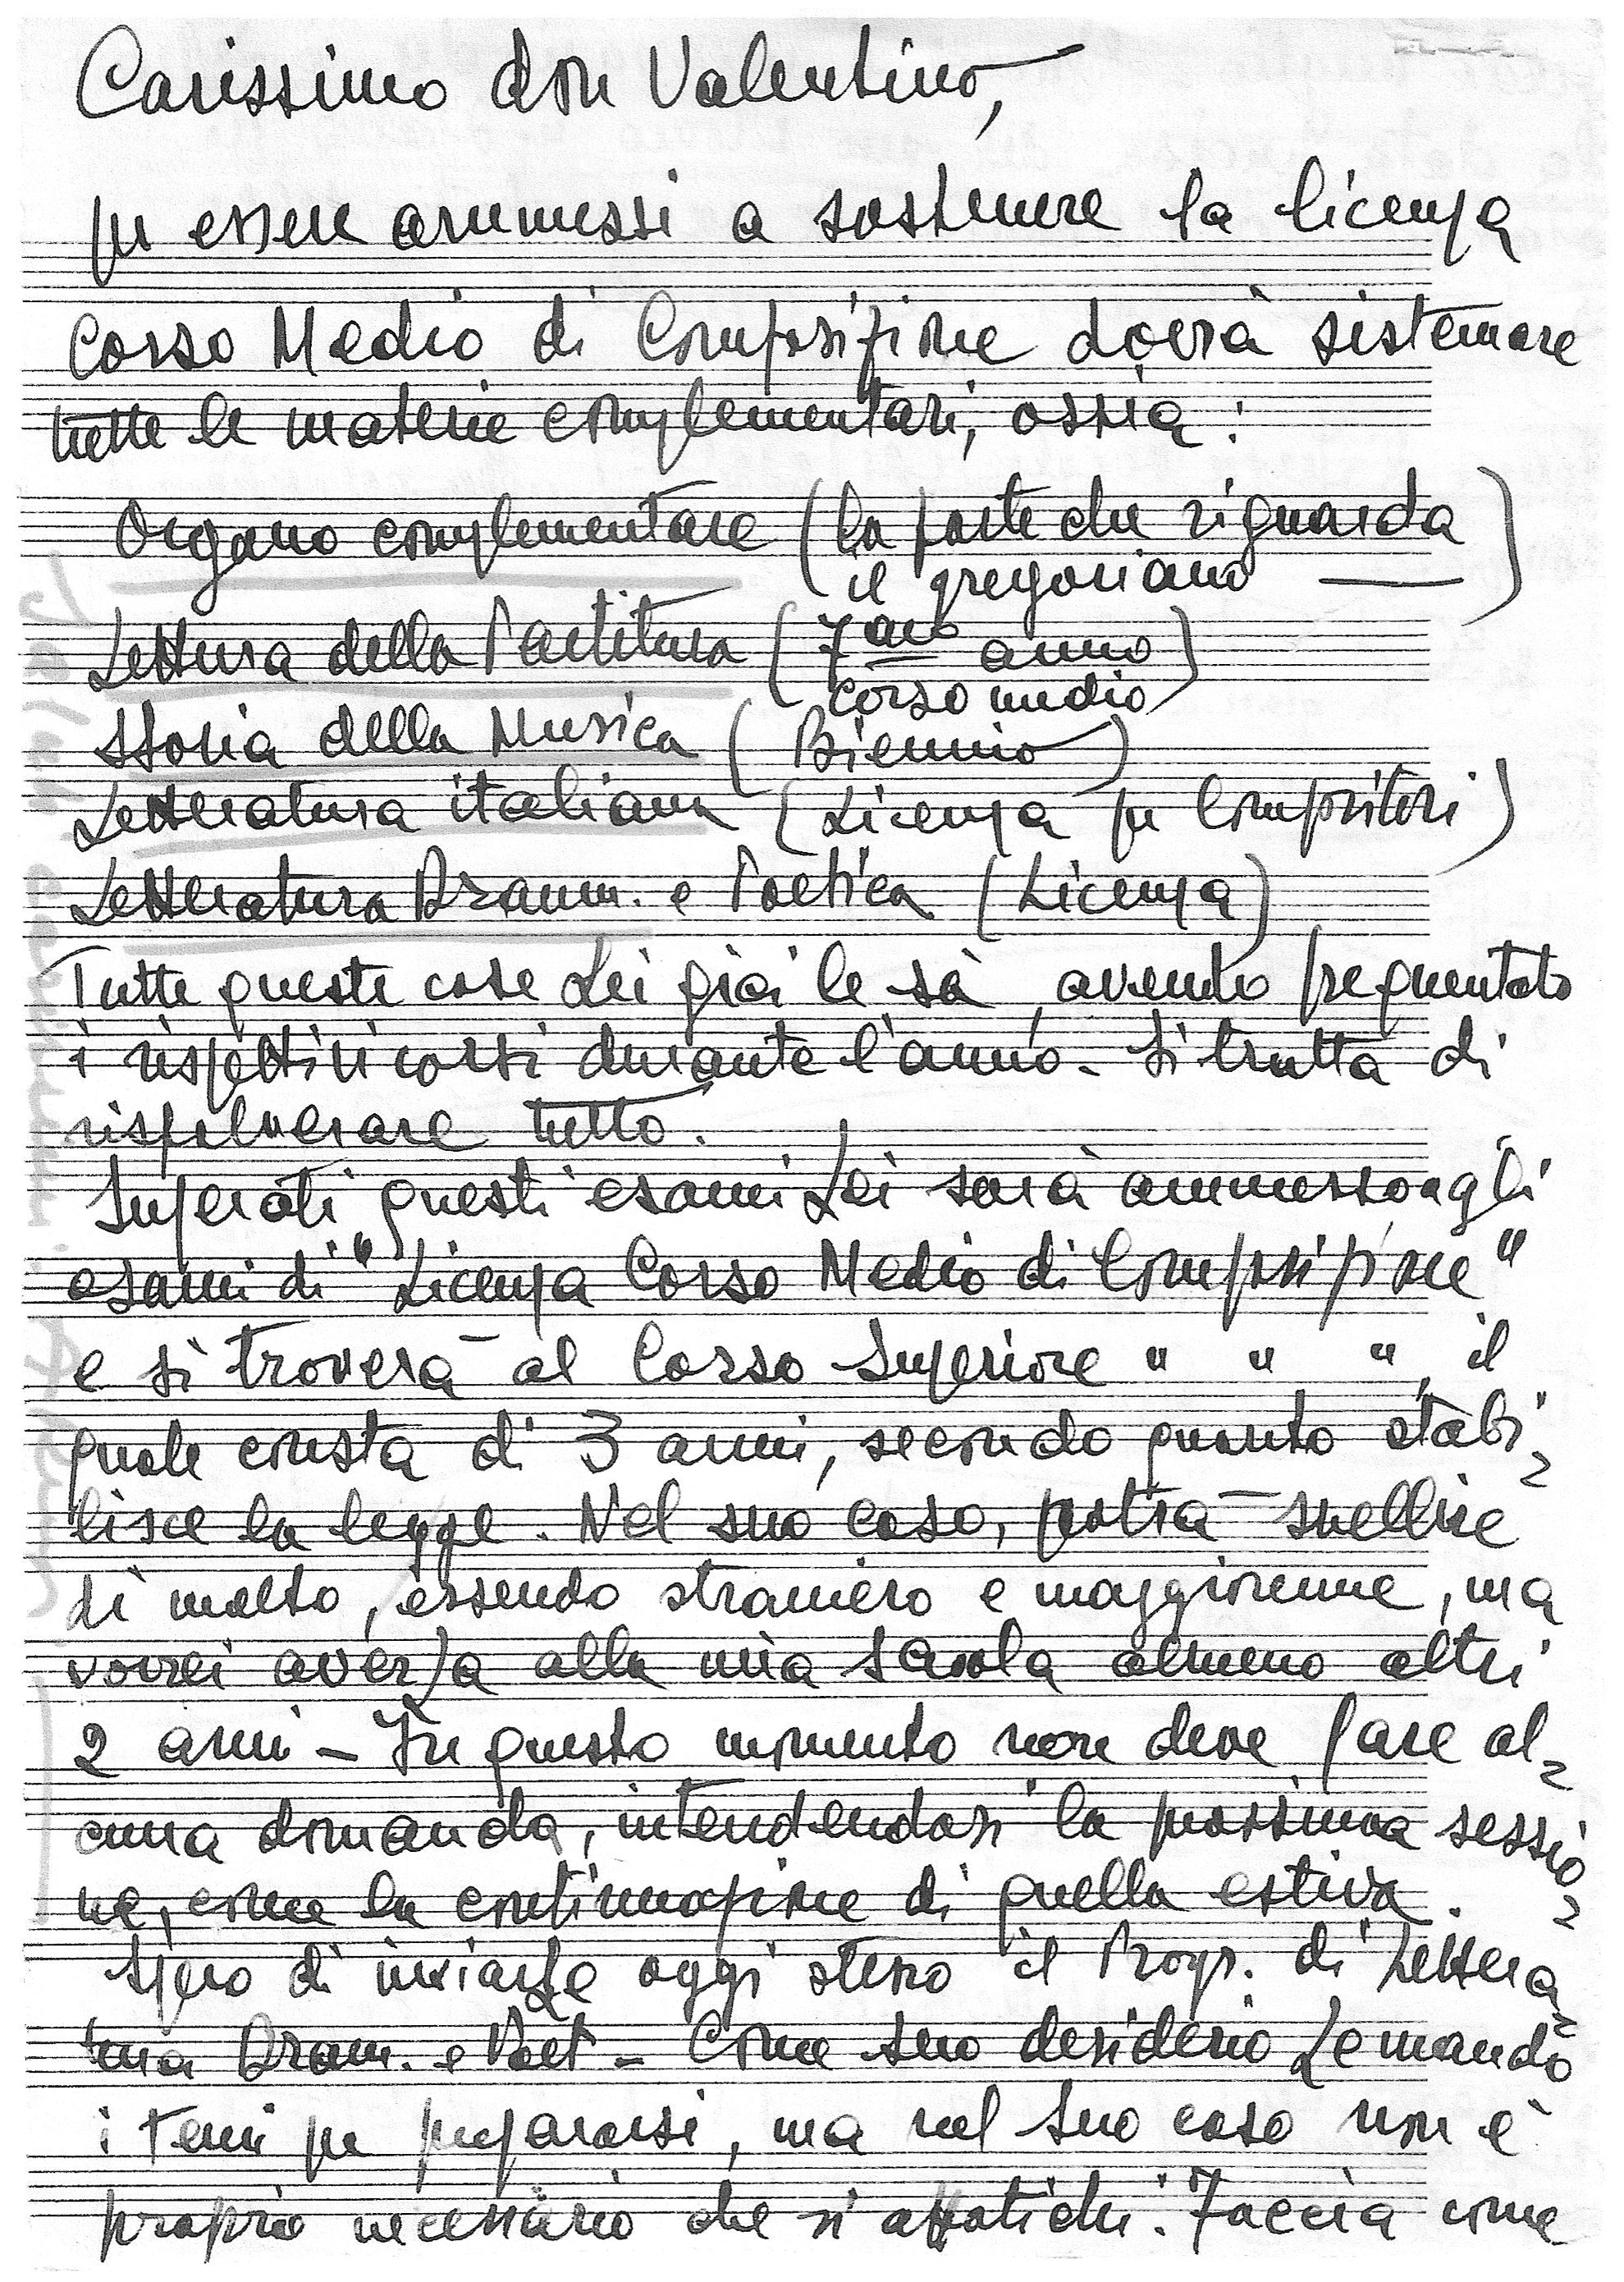 Carissimo don Valentino,
per essere ammessi a sostenere la licenza
Corso Medio di Composizione dovrà sistemare
tutte le materie complementari, ossia:
Organo complementare (la parte che riguarda
il gregoriano —)
Lettura della Partitura (7mo anno
corso medio)
Storia della Musica (Biennio)
Letteratura italiana (Licenza per Compositori)
Letteratura Dramm. e Poetica (Licenza)
Tutte queste cose Lei già le sà, avendo frequentato
i rispettivi corsi durante l'anno. Si tratta di
rispolverare tutto.
Superati questi esami Lei sarà ammesso agli
esami di "Licenza Corso Medio di Composizione"
e si troverà al Corso Superiore " " ", il
quale consta di 3 anni, secondo quanto stabi-
lisce la legge. Nel suo caso, potrà snellire
di molto, essendo straniero e maggiorenne, ma
vorrei averLa alla mia scuola almeno altri
2 anni - In questo momento non deve fare al-
cuna domanda, intendendosi la prossima sessio-
ne, come la continuazione di quella estiva.
Spero di inviarLe oggi stesso il Progr. di Lettera-
tura Dram. e Poet - Come suo desiderio Le mando
i temi per prepararsi, ma nel Suo caso non è
proprio necessario che si affatichi. Faccia come